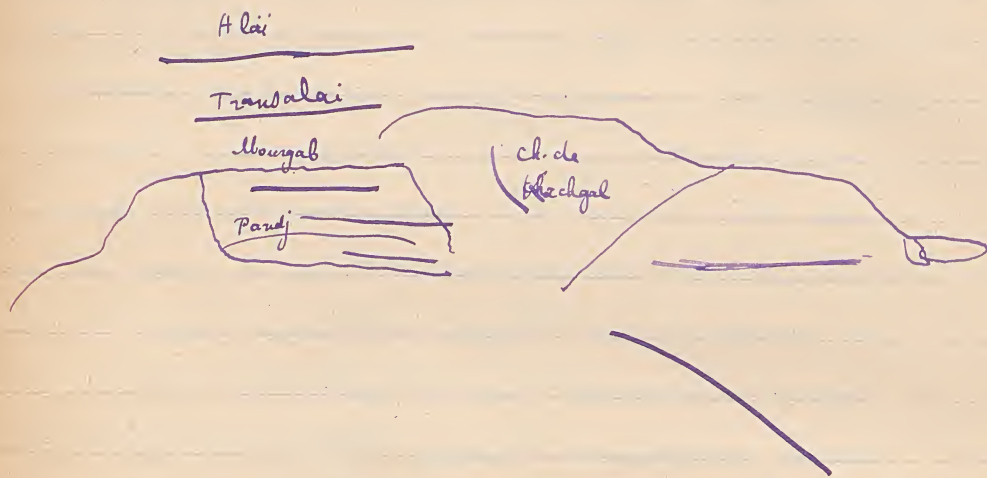 Alaï
Transalai
Mourgab
Pandj
ch. de
Kachgal